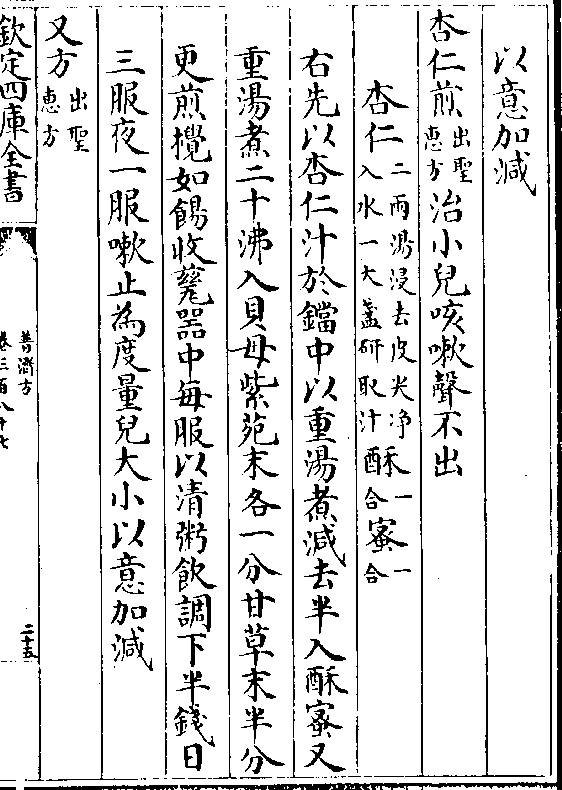 以意加減
杏仁煎出聖惠方治小兒咳嗽聲不出
杏仁二兩湯浸去皮尖净入水一大盞研取汁酥一合蜜一合
右先以杏仁汁於鐺中以重湯煮減去半入酥蜜又
重湯煮二十沸入貝母紫苑末各一分甘草末半分
更煎攪如餳收甆器中每服以清粥飲調下半錢日
三服夜一服嗽止為度量兒大小以意加減
又方出聖惠方
欽定四庫全書
普濟方
卷三百八十七
二十五